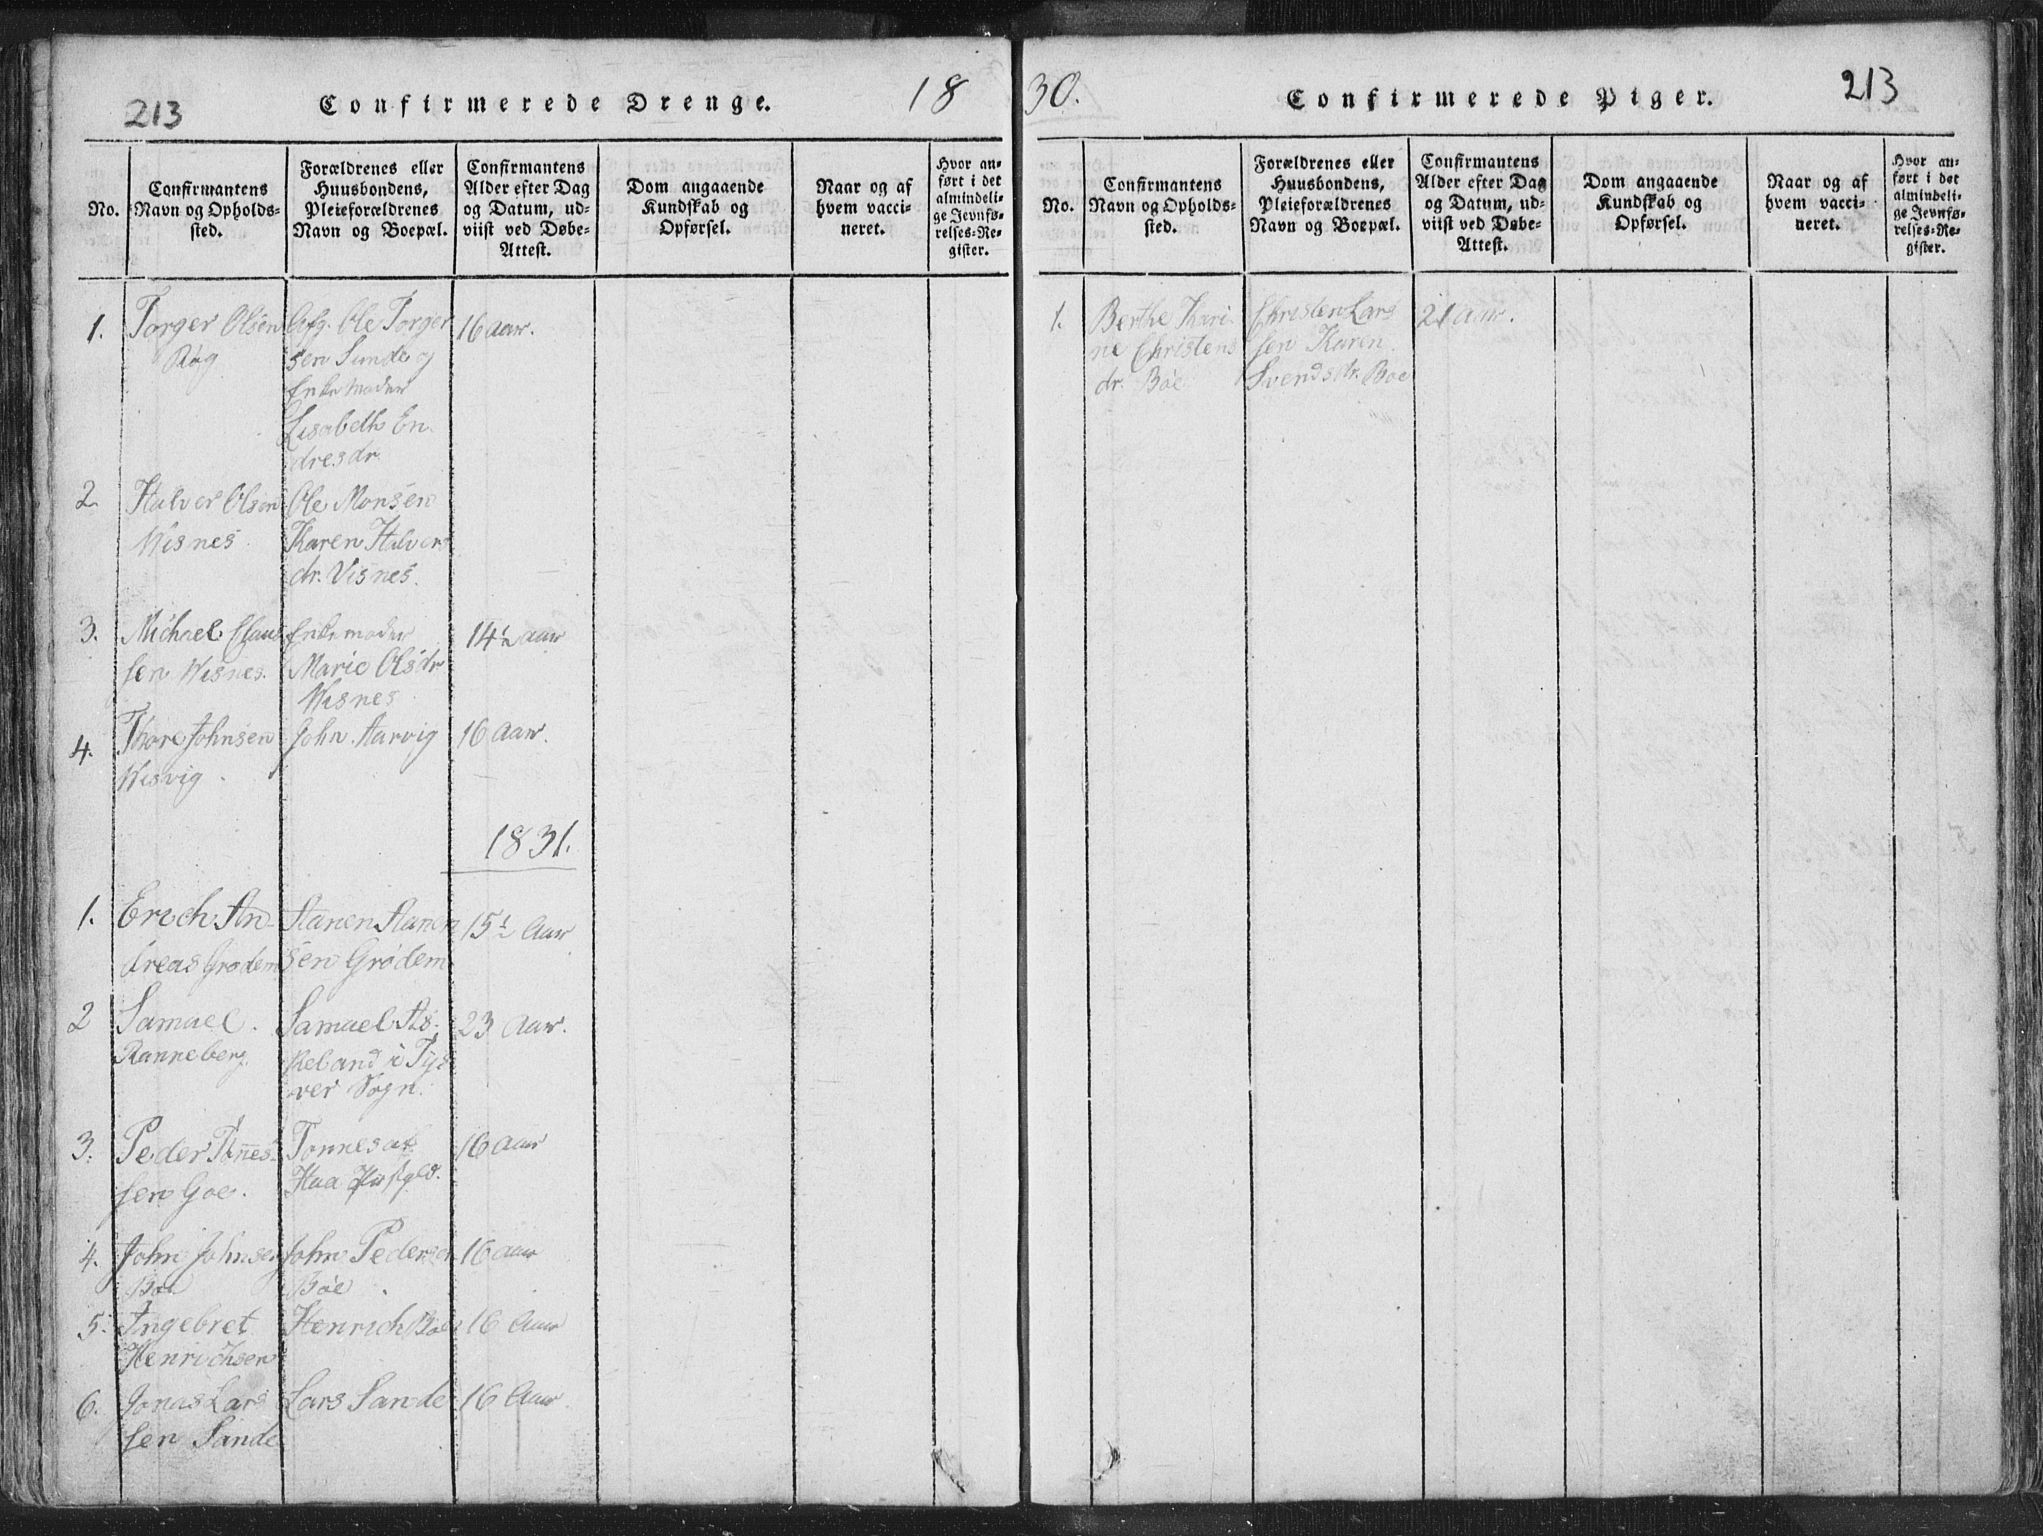 213
Confirmerede Drenge.
18
No.
Confirmantens Navn og Opholds-sted.
Forældrenes eller Huusbondens, Pleieforældrenes Navn og Boepæl.
Confirmantens Alder efter Dag og Datum, ud-viist ved Døbe-Attest.
Dom angaaende Kundskab og Opførsel.
Naar og af hvem vacci-neret.
Hvor an-ført i det almindeli-ge Jevnfø-relses-Re-gister.
1.
Torger Olsen
Røg
Afg. Ole Torger
sen Sunde og
Enke moder
Lisabeth En
dresdr.
16 aar.
2
Halver Olsen
Wisnes
Ole Monsen
Karen Halvers
dr. Visnes.
3.
Michael Claus
sen Wisnes.
Enke moder
Marie Olsdr
Wisnes
14½ aar
4.
Thore Johnsen
Wisvig
John Aarvig
16 Aar.
1831.
1.
Erich An-
dreas Grødem
Hanen Hanen
sen Grødem
15½ Aar
2
Samuel.
Ranneberg.
Samuel As-
keland i Tys
ver Sogn.
23 Aar.
3.
Peder Tønnes-
sen Goe.
Tonnes
Haa
16 Aar
4.
John Johnsen
Boe
John Pedersen
Bøe
16 aar
5.
Ingebret
Henrichsen
Henrich Boe
16 Aar
6.
Jonas Lars
sen Sande
Lars Sande
16 Aar.
30.
Confirmerede Piger.
213
No.
Confirmantens Navn og Opholds-sted.
Forældrenes eller Huusbondens, Pleieforældrenes Navn og Boepæl.
Confirmantens Alder efter Dag og Datum, ud-viist ved Døbe-Attest.
Dom angaaende Kundskab og Opførsel.
Naar og af hvem vacci-neret.
Hvor an-ført i det almindeli-ge Jevnfø-relses-Re-gister.
1.
Berthe Kari-
ne Christens
dr. Bøe
Christen Lars
sen Karen
Svendsdr. Boe
21 Aar.